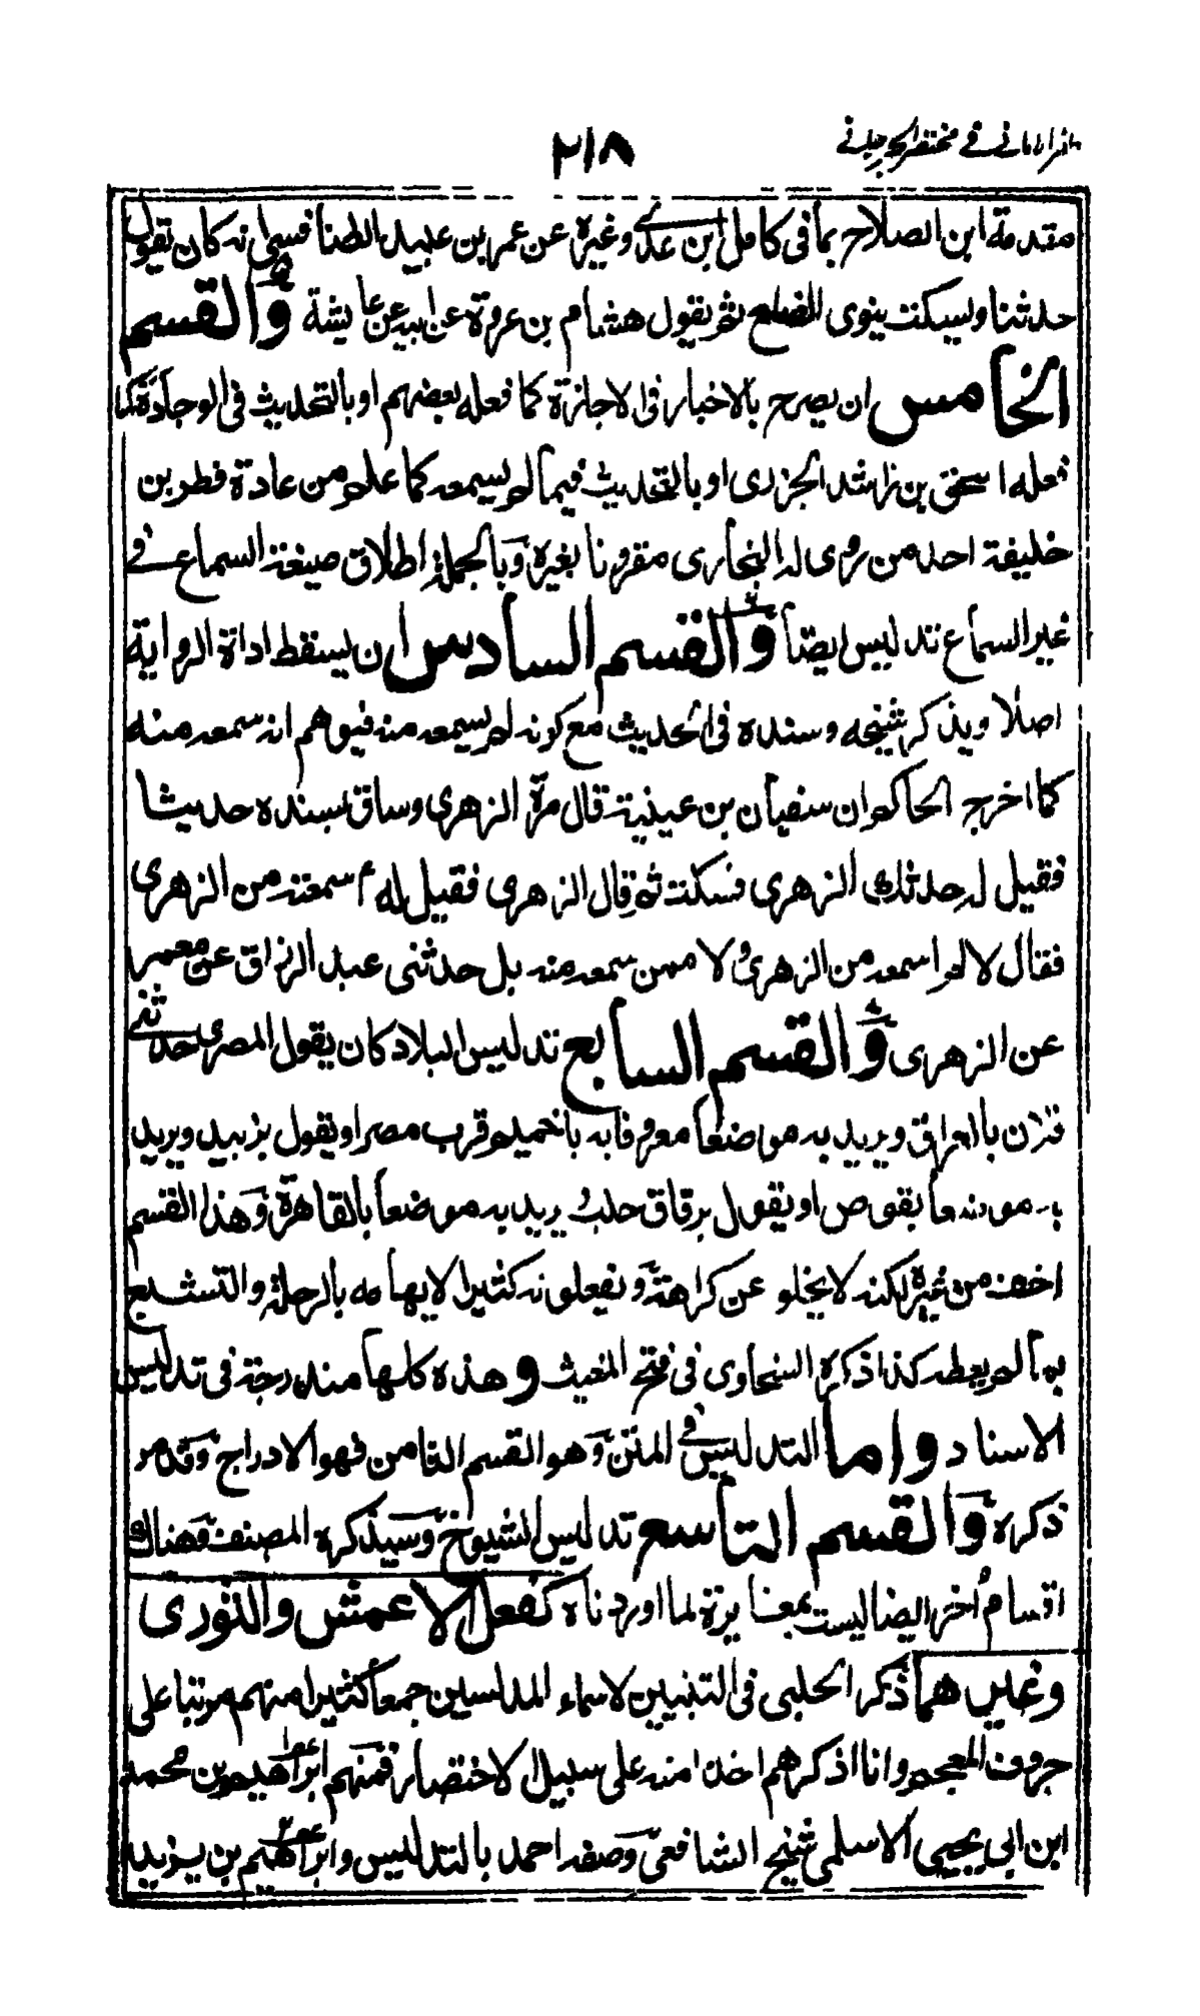 ظفر الاماني في مختصر الجرجاني
٢١٨
مقدمة ابن الصلاح بما فى كامل ابن عدى وغيره عن عمر بن عبيد الطنافسى انه كان يقول
حدثنا ويسكت ينوى القطع ثم يقول هشام بن عروة عن ابيه عن عايشة والقسم
الخامس ان يصرح بالاخبار فى الاجازة كما فعله بعضهم او بالتحديث فى الوجادة كما
فعله اسحق بن راشد الجزرى او بالتحديث فيما لم يسمعه كما علم من عادة فطر بن
خليفة احد من روى له البخارى مقرونا بغيره وبالجملة اطلاق صيغة السماع فى
غير السماع تدليس ايضا والقسم السادس ان يسقط اداة الرواية
اصلا ويذكر شيخه وسنده فى الحديث مع كونه لم يسمعه منه فيوهم انه سمعه منه
كما اخرجه الحاكم ان سفيان بن عيينة قال مرة الزهرى وساق بسنده حديثا
فقيل له حدثك الزهرى فسكت ثم قال الزهرى فقيل له ءسمعته من الزهرى
فقال لا لم اسمعه من الزهرى ولا ممن سمعه منه بل حدثنى عبد الرزاق عن معمر
عن الزهرى والقسم السابع تدليس البلاد كان يقول المصرى حدثنى
فلان بالعراق ويريد به موضعا معروفا به باخميم قرب مصر او يقول بزبيد ويريد
به موضعا بقوص او يقول برقاق حلب يريد به موضعا بالقاهرة وهذا القسم
اخف من غيره لكنه لا يخلو عن كراهة ويفعلونه كثيرا لايهامه بالرحلة والتشبع
بما لم يعطه كذا ذكره السخاوى فى فتح المغيث وهذه كلها مندرجة فى تدليس
الاسناد واما التدليس فى المتن وهو القسم الثامن فهو الادراج وقد مر
ذكره والقسم التاسع تدليس الشيوخ وسيذكره المصنف وهناك
اقسام اخر ايضا ليست بمغايرة لما اوردناه كفعل الاعمش والثورى
وغيرهما ذكر الحلبى فى التبيين لاسماء المدلسين جمعا كثيرا منهم مرتبا على
حروف المعجم وانا اذكرهم اخذا منه على سبيل الاختصار فمنهم ابراهيم بن محمد
ابن ابى يحيى الاسلمى شيخ الشافعى وصفه احمد بالتدليس وابراهيم بن يزيد